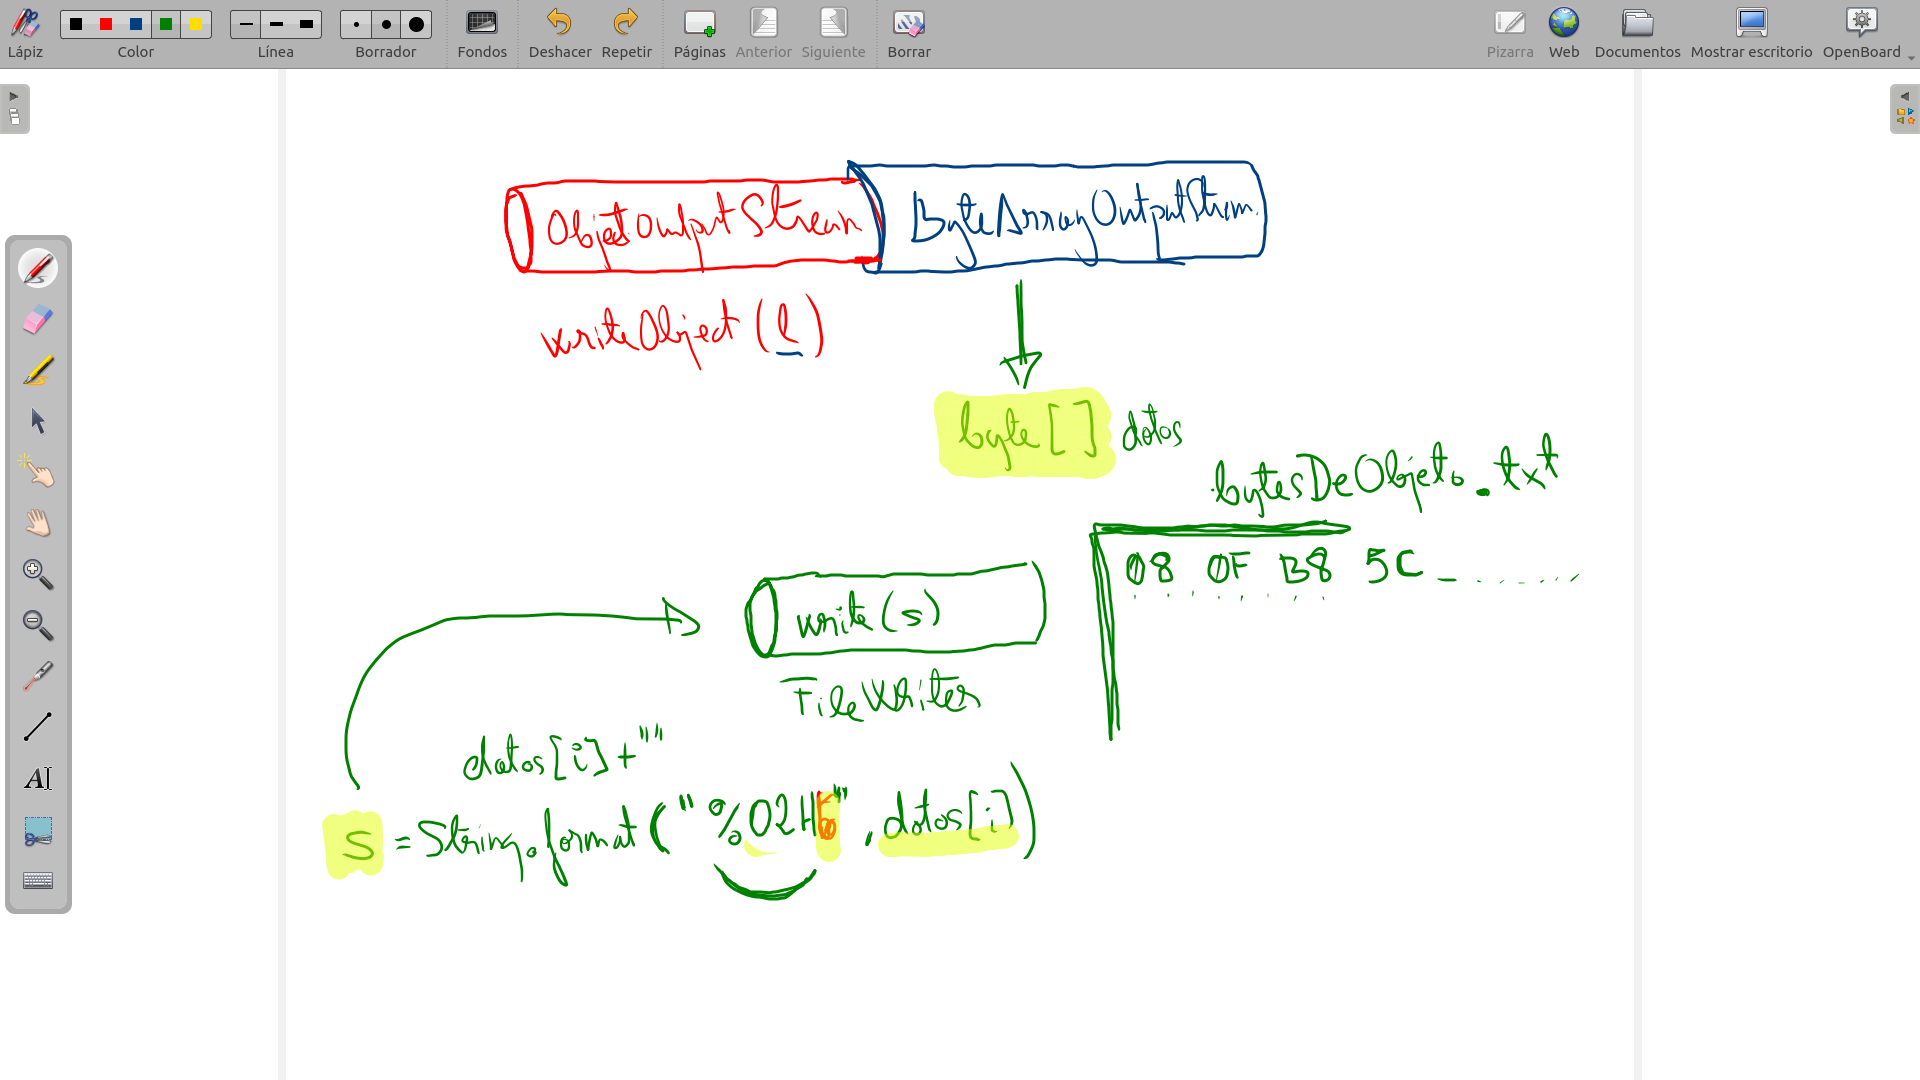 Lápiz Color Línea Borrador Fondos Deshacer Repetir Páginas Anterior Siguiente Borrar Pizarra Web Documentos Mostrar escritorio OpenBoard
ObjectOutputStream ByteArrayOutputStream
writeObject (l)
byte [ ] datos
bytesDeObjeto.txt
08 0F B8 5C
write(s)
FileWriter
datos[i]+""
s = String.format("%02H ", datos[i])